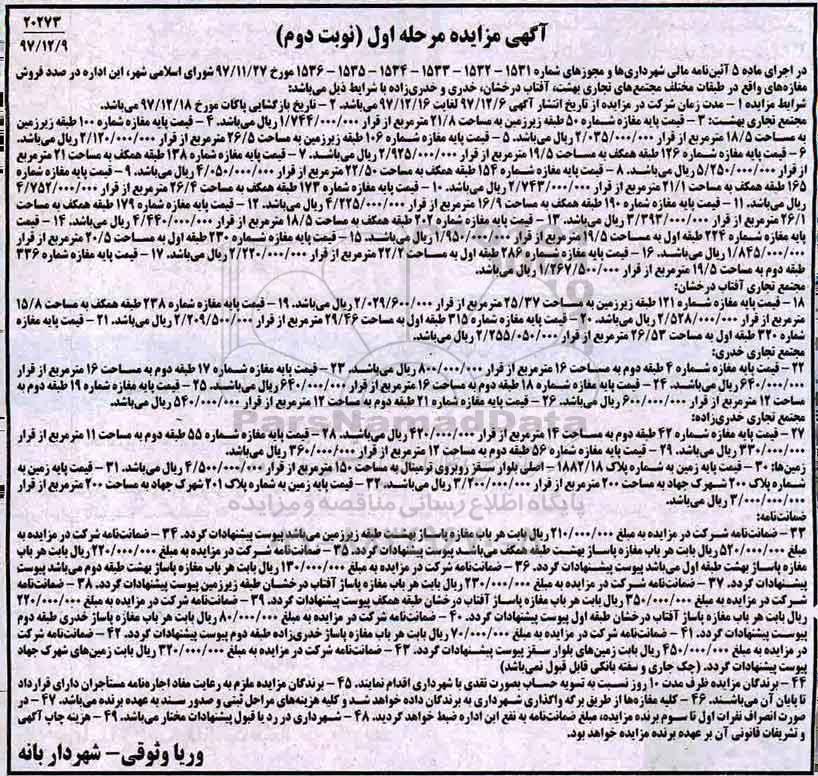 ۲۰۲۷۳
۹۷/۱۲/۹
آگهی مزایده مرحله اول (نوبت دوم)
در اجرای ماده ۵ آئین‌نامه مالی شهرداری‌ها و مجوزهای شماره ۱۵۳۱ - ۱۵۳۲ - ۱۵۳۳ - ۱۵۳۴ - ۱۵۳۵ - ۱۵۳۶ مورخ ۹۷/۱۱/۲۷ شورای اسلامی شهر، این اداره در صدد فروش
مغازه‌های واقع در طبقات مختلف مجتمع‌های تجاری بهشت، آفتاب درخشان، خدری و خدری‌زاده با شرایط ذیل می‌باشد:
شرایط مزایده ۱ - مدت زمان شرکت در مزایده از تاریخ انتشار آگهی ۹۷/۱۲/۶ لغایت ۹۷/۱۲/۱۶ می‌باشد. ۲ - تاریخ بازگشایی پاکات مورخ ۹۷/۱۲/۱۸ می‌باشد.
مجتمع تجاری بهشت: ۳ - قیمت پایه مغازه شماره ۵۰ طبقه زیرزمین به مساحت ۲۱/۸ مترمربع از قرار ۱/۷۴۴/۰۰۰/۰۰۰ ریال می‌باشد. ۴ - قیمت پایه مغازه شماره ۱۰۰ طبقه زیرزمین
به مساحت ۱۸/۵ مترمربع از قرار ۲/۰۳۵/۰۰۰/۰۰۰ ریال می‌باشد. ۵ - قیمت پایه مغازه شماره ۱۰۶ طبقه زیرزمین به مساحت ۲۶/۵ مترمربع از قرار ۲/۱۲۰/۰۰۰/۰۰۰ ریال می‌باشد.
۶ - قیمت پایه مغازه شماره ۱۲۶ طبقه همکف به مساحت ۱۹/۵ مترمربع از قرار ۲/۹۲۵/۰۰۰/۰۰۰ ریال می‌باشد. ۷ - قیمت پایه مغازه شماره ۱۳۸ طبقه همکف به مساحت ۲۱ مترمربع
از قرار ۵/۲۵۰/۰۰۰/۰۰۰ ریال می‌باشد. ۸ - قیمت پایه مغازه شماره ۱۵۴ طبقه همکف به مساحت ۲۲/۵۰ مترمربع از قرار ۴/۰۵۰/۰۰۰/۰۰۰ ریال می‌باشد. ۹ - قیمت پایه مغازه شماره
۱۶۵ طبقه همکف به مساحت ۲۱/۱ مترمربع از قرار ۲/۷۴۳/۰۰۰/۰۰۰ ریال می‌باشد. ۱۰ - قیمت پایه مغازه شماره ۱۷۳ طبقه همکف به مساحت ۲۶/۴ مترمربع از قرار ۴/۷۵۲/۰۰۰/۰۰۰
ریال می‌باشد. ۱۱ - قیمت پایه مغازه شماره ۱۹۰ طبقه همکف به مساحت ۱۶/۹ مترمربع از قرار ۴/۲۲۵/۰۰۰/۰۰۰ ریال می‌باشد. ۱۲ - قیمت پایه مغازه شماره ۱۷۹ طبقه همکف به مساحت
۲۶/۱ مترمربع از قرار ۳/۳۹۳/۰۰۰/۰۰۰ ریال می‌باشد. ۱۳ - قیمت پایه مغازه شماره ۲۰۲ طبقه همکف به مساحت ۱۸/۵ مترمربع از قرار ۴/۴۴۰/۰۰۰/۰۰۰ ریال می‌باشد. ۱۴ - قیمت
پایه مغازه شماره ۲۲۴ طبقه اول به مساحت ۱۹/۵ مترمربع از قرار ۱/۹۵۰/۰۰۰/۰۰۰ ریال می‌باشد. ۱۵ - قیمت پایه مغازه شماره ۲۳۰ طبقه اول به مساحت ۲۰/۵ مترمربع از قرار
۱/۸۴۵/۰۰۰/۰۰۰ ریال می‌باشد. ۱۶ - قیمت پایه مغازه شماره ۲۸۶ طبقه اول به مساحت ۲۲/۲ مترمربع از قرار ۲/۲۲۰/۰۰۰/۰۰۰ ریال می‌باشد. ۱۷ - قیمت پایه مغازه شماره ۳۳۶
طبقه دوم به مساحت ۱۹/۵ مترمربع از قرار ۱/۲۶۷/۵۰۰/۰۰۰ ریال می‌باشد.
مجتمع تجاری آفتاب درخشان:
۱۸ - قیمت پایه مغازه شماره ۱۲۱ طبقه زیرزمین به مساحت ۲۵/۳۷ مترمربع از قرار ۲/۰۲۹/۶۰۰/۰۰۰ ریال می‌باشد. ۱۹ - قیمت پایه مغازه شماره ۲۳۸ طبقه همکف به مساحت ۱۵/۸
مترمربع از قرار ۲/۵۲۸/۰۰۰/۰۰۰ ریال می‌باشد. ۲۰ - قیمت پایه مغازه شماره ۳۱۵ طبقه اول به مساحت ۲۹/۴۶ مترمربع از قرار ۲/۲۰۹/۵۰۰/۰۰۰ ریال می‌باشد. ۲۱ - قیمت پایه مغازه
شماره ۳۲۰ طبقه اول به مساحت ۲۶/۵۳ مترمربع از قرار ۲/۲۵۵/۰۵۰/۰۰۰ ریال می‌باشد.
مجتمع تجاری خدری:
۲۲ - قیمت پایه مغازه شماره ۴ طبقه دوم به مساحت ۱۶ مترمربع از قرار ۸۰۰/۰۰۰/۰۰۰ ریال می‌باشد. ۲۳ - قیمت پایه مغازه شماره ۱۷ طبقه دوم به مساحت ۱۶ مترمربع از قرار
۶۴۰/۰۰۰/۰۰۰ ریال می‌باشد. ۲۴ - قیمت پایه مغازه شماره ۱۸ طبقه دوم به مساحت ۱۶ مترمربع از قرار ۶۴۰/۰۰۰/۰۰۰ ریال می‌باشد. ۲۵ - قیمت پایه مغازه شماره ۱۹ طبقه دوم به
مساحت ۱۲ مترمربع از قرار ۶۰۰/۰۰۰/۰۰۰ ریال می‌باشد. ۲۶ - قیمت پایه مغازه شماره ۲۱ طبقه دوم به مساحت ۱۲ مترمربع از قرار ۵۴۰/۰۰۰/۰۰۰ ریال می‌باشد.
مجتمع تجاری خدری‌زاده:
۲۷ - قیمت پایه مغازه شماره ۴۲ طبقه دوم به مساحت ۱۴ مترمربع از قرار ۴۲۰/۰۰۰/۰۰۰ ریال می‌باشد. ۲۸ - قیمت پایه مغازه شماره ۵۵ طبقه دوم به مساحت ۱۱ مترمربع از قرار
۳۳۰/۰۰۰/۰۰۰ ریال می‌باشد. ۲۹ - قیمت پایه مغازه شماره ۵۶ طبقه دوم به مساحت ۱۲ مترمربع از قرار ۳۶۰/۰۰۰/۰۰۰ ریال می‌باشد.
زمین‌ها: ۳۰ - قیمت پایه زمین به شماره پلاک ۱۸۸۲/۱۸ - اصلی بلوار سقز روبروی ترمینال به مساحت ۱۵۰ مترمربع از قرار ۴/۵۰۰/۰۰۰/۰۰۰ ریال می‌باشد. ۳۱ - قیمت پایه زمین به
شماره پلاک ۲۰۰ شهرک جهاد به مساحت ۲۰۰ مترمربع از قرار ۳/۲۰۰/۰۰۰/۰۰۰ ریال می‌باشد. ۳۲ - قیمت پایه زمین به شماره پلاک ۲۰۱ شهرک جهاد به مساحت ۲۰۰ مترمربع از قرار
۳/۰۰۰/۰۰۰/۰۰۰ ریال می‌باشد.
ضمانت‌نامه:
۳۳ - ضمانت‌نامه شرکت در مزایده به مبلغ ۲۱۰/۰۰۰/۰۰۰ ریال بابت هر باب مغازه پاساژ بهشت طبقه زیرزمین می‌باشد پیوست پیشنهادات گردد. ۳۴ - ضمانت‌نامه شرکت در مزایده به
مبلغ ۵۲۰/۰۰۰/۰۰۰ ریال بابت هر باب مغازه پاساژ بهشت طبقه همکف می‌باشد پیوست پیشنهادات گردد. ۳۵ - ضمانت‌نامه شرکت در مزایده به مبلغ ۲۲۰/۰۰۰/۰۰۰ ریال بابت هر باب
مغازه پاساژ بهشت طبقه اول می‌باشد پیوست پیشنهادات گردد. ۳۶ - ضمانت‌نامه شرکت در مزایده به مبلغ ۱۳۰/۰۰۰/۰۰۰ ریال بابت هر باب مغازه پاساژ بهشت طبقه دوم می‌باشد پیوست
پیشنهادات گردد. ۳۷ - ضمانت‌نامه شرکت در مزایده به مبلغ ۲۳۰/۰۰۰/۰۰۰ ریال بابت هر باب مغازه پاساژ آفتاب درخشان طبقه زیرزمین پیوست پیشنهادات گردد. ۳۸ - ضمانت‌نامه
شرکت در مزایده به مبلغ ۳۵۰/۰۰۰/۰۰۰ ریال بابت هر باب مغازه پاساژ آفتاب درخشان طبقه همکف پیوست پیشنهادات گردد. ۳۹ - ضمانت‌نامه شرکت در مزایده به مبلغ ۲۲۰/۰۰۰/۰۰۰
ریال بابت هر باب مغازه پاساژ آفتاب درخشان طبقه اول پیوست پیشنهادات گردد. ۴۰ - ضمانت‌نامه شرکت در مزایده به مبلغ ۸۰/۰۰۰/۰۰۰ ریال بابت هر باب مغازه پاساژ خدری طبقه دوم
پیوست پیشنهادات گردد. ۴۱ - ضمانت‌نامه شرکت در مزایده به مبلغ ۷۰/۰۰۰/۰۰۰ ریال بابت هر باب مغازه پاساژ خدری‌زاده طبقه دوم پیوست پیشنهادات گردد. ۴۲ - ضمانت‌نامه شرکت
در مزایده به مبلغ ۴۵۰/۰۰۰/۰۰۰ ریال بابت زمین‌های بلوار سقز پیوست پیشنهادات گردد. ۴۳ - ضمانت‌نامه شرکت در مزایده به مبلغ ۳۲۰/۰۰۰/۰۰۰ ریال بابت زمین‌های شهرک جهاد
پیوست پیشنهادات گردد. (چک جاری و سفته بانکی قابل قبول نمی‌باشد)
۴۴ - برندگان مزایده ظرف مدت ۱۰ روز نسبت به تسویه حساب بصورت نقدی با شهرداری اقدام نمایند. ۴۵ - برندگان مزایده ملزم به رعایت مفاد اجاره‌نامه مستأجران دارای قرارداد
تا پایان آن می‌باشند. ۴۶ - کلیه مغازه‌ها از طریق برگه واگذاری شهرداری به برندگان داده خواهد شد و کلیه هزینه‌های مراحل ثبتی و صدور سند به عهده برنده می‌باشد. ۴۷ - در
صورت انصراف نفرات اول تا سوم برنده مزایده، مبلغ ضمانت‌نامه به نفع این اداره ضبط خواهد گردید. ۴۸ - شهرداری در رد یا قبول پیشنهادات مختار می‌باشد. ۴۹ - هزینه چاپ آگهی
و تشریفات قانونی آن بر عهده برنده مزایده خواهد بود.
وریا وثوقی - شهردار بانه
ParsNamadData
پایگاه اطلاع رسانی مناقصه و مزایده